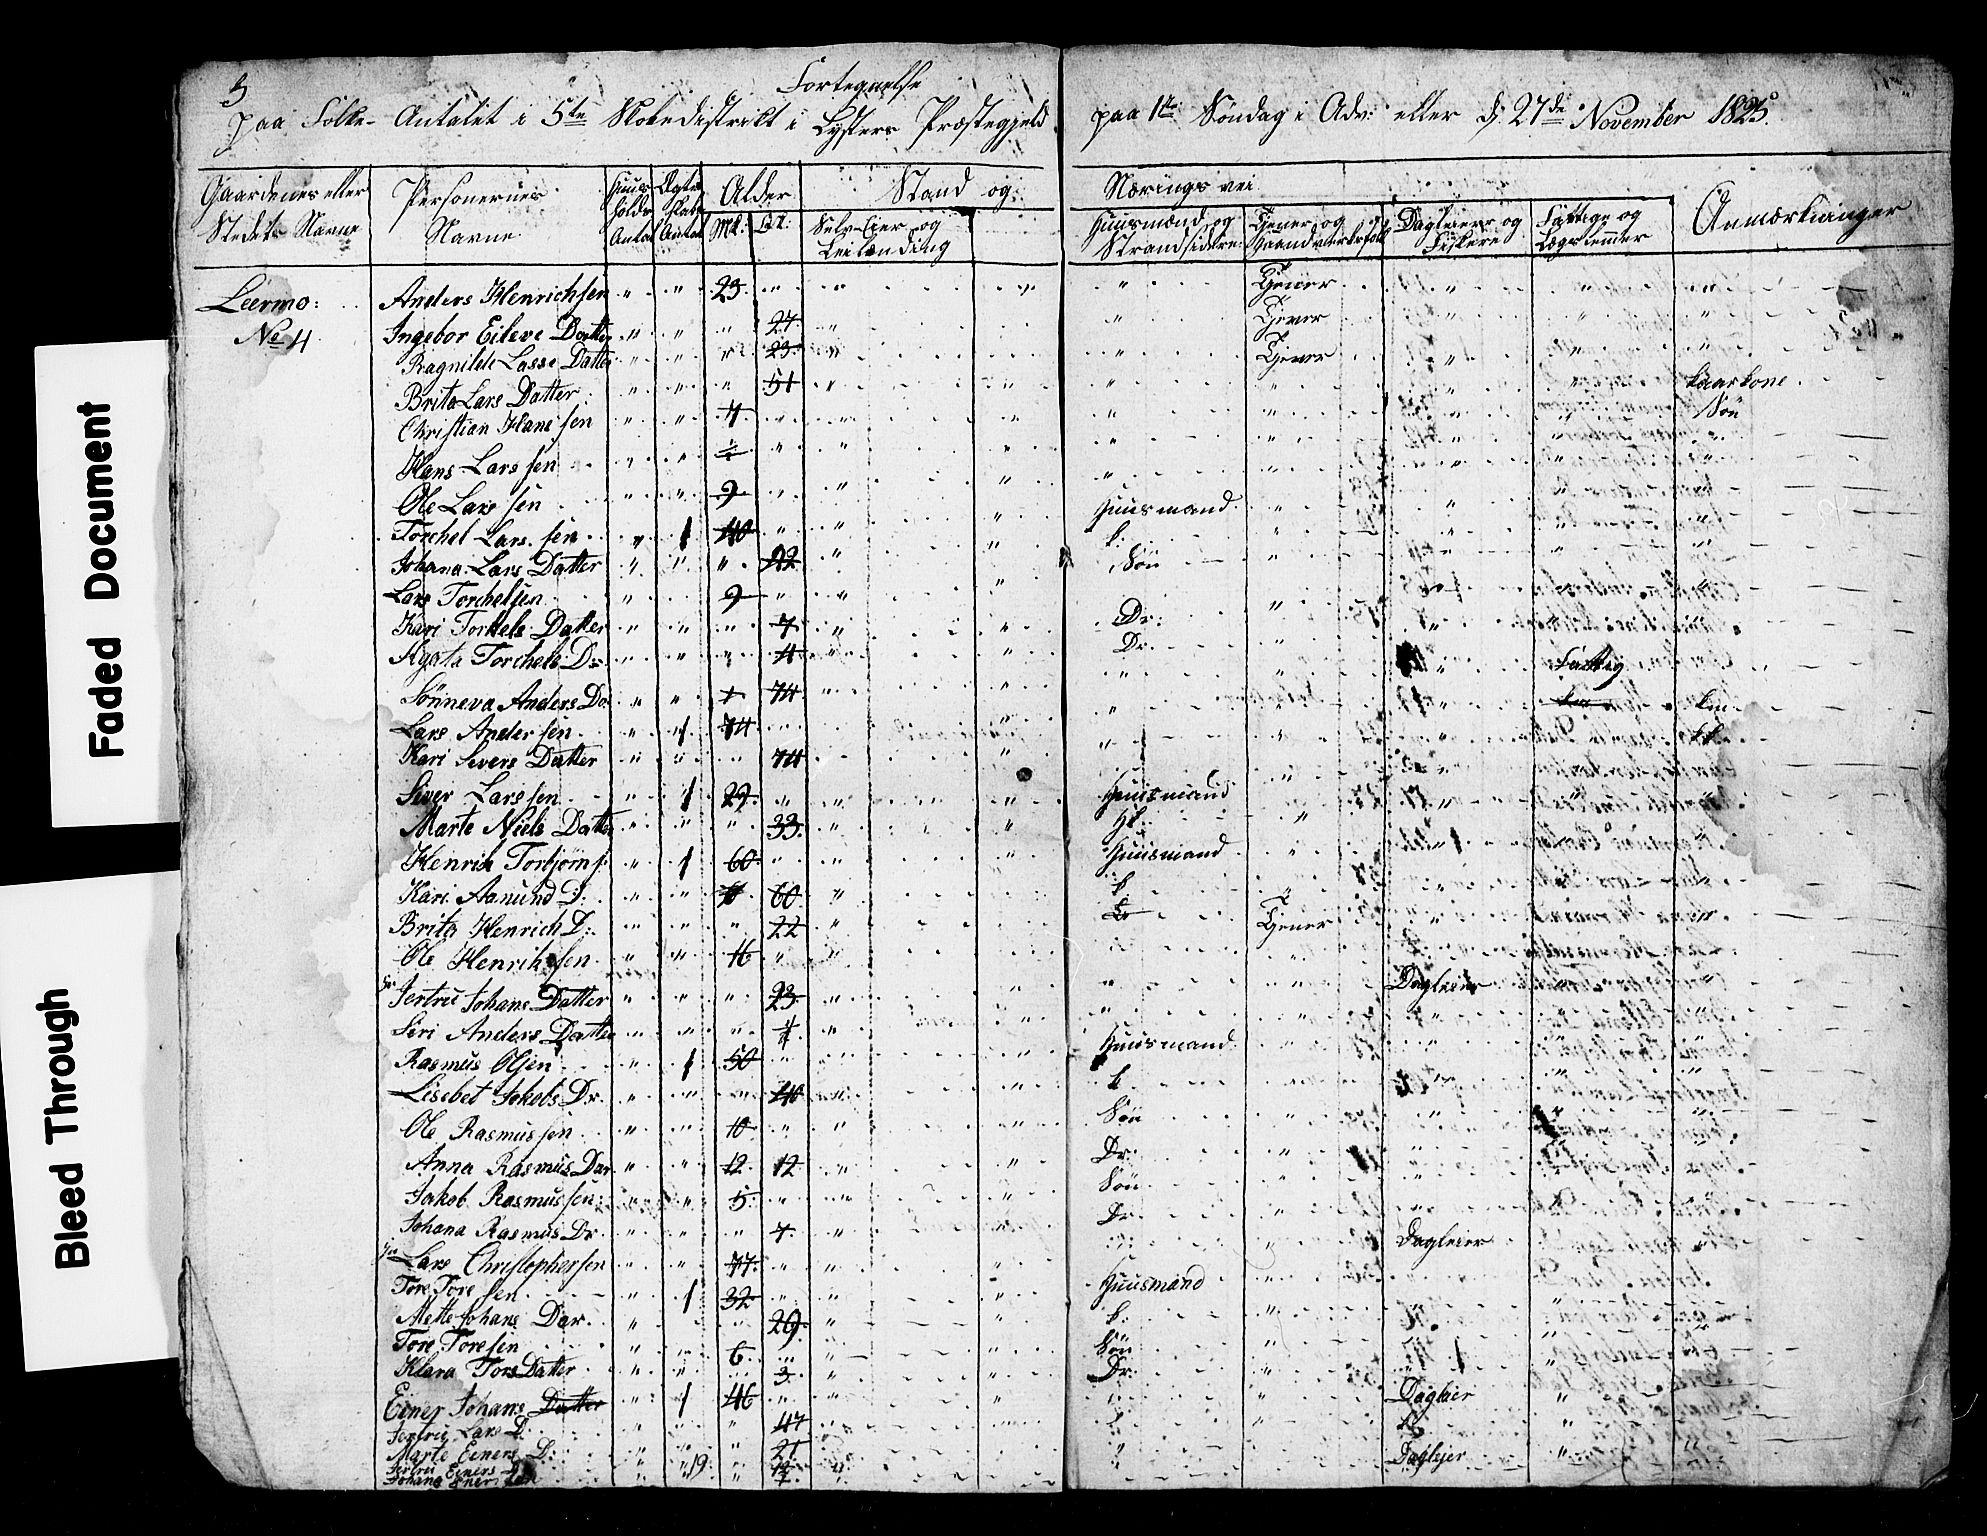 Faded Document
Bleed Through
3
Fortegnelse
paa Folke- Antalet i 5te Skoledistrikt i Lysters Præstegjeld paa 1te Søndag i Adv: eller d: 27de November 1825.
Gaardenes eller Stedets Navne | Personernes Navne | Huus holds Antal | Ægte skabs Antal | Alder | Stand og | Nærings vei | Anmærkninger
Mk: | Qk: | Selv-Eier og Leilænding | Huusmænd og Strandsiddere | Tjener og Haandværksfolk | Dagleier og Fiskere | Fattige og Lægslemmer
Leermo: Anders Henrichsen 23 Tjener
No 4 Ingebor Eileve Datter 27 Tjener
Ragnilde Lasse Datter 23 Tjener
Brita Lars Datter 51 kaarkone
Christian Hans sen 4 Søn
Hans Lars sen
Ole Lars sen 9
Torchel Lars sen 1 40 Huusmand
Johana Lars Datter 22 k:
Lars Torchelsen 9 Søn
Kari Torkels Datter 7 Dr:
Agata Torchels Dr 4 Dr
Sønneva Anders Da 74 Fattig
Lars Andersen 1 74 km
Kari Severs Datter 74 kk
Sever Lars sen 1 29 Huusmand
Marte Niels Datter 33 Hk
Henrik Torbjørns: 1 60 Huusmand
Kari Aamund D: 60 k
Brita Henrich D: 22 Tjener
Ole Henriksen 16
Jertru Johans Datter 23 Dagleier
Seri Anders Datter
Rasmus Olsen 1 50 Huusmand
Lisebet Jakobs Dr. 40 k
Ole Rasmussen 10 Søn
Anna Rasmus Dar 12 12 Dr:
Jakob Rasmussen 5 Søn
Johana Rasmus Dr. 7 Dr
Lars Christophersen 77 Dagleier
Tore Tore sen 1 32 Huusmand
Mette Johans Dar. 29 k.
Tore Toresen 6 Søn
Klara Tors Datter 3 Dr
Einer Johans Datter 1 46 Dagleier
Jertru Lars D: 47 k
Marte Einers D: 21 Daglejer
Jertru Einers D 19
Johans Einer sen